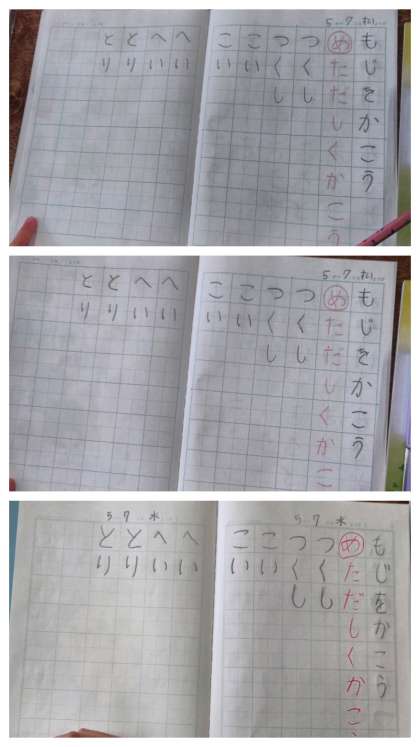 5 7
もじをかこう
め ただしくかこう
つくし
つくし
こい
こい
へい
へい
とり
とり
5 7
もじをかこう
め ただしくかこ
つくし
つくし
こい
こい
へい
へい
とり
とり
5 7 水
もじをかこう
め ただしくかこ
つくし
つくし
こい
こい
5 7 水
へい
へい
とり
とり